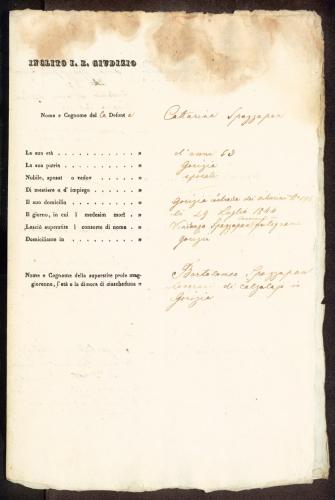 INCLITO I. R. GIUDIZIO
Nome e Cognome del la Defont a Cattarina Spazzapan
La sua età . . . . . . . . . . » d'anni 63
La sua patria . . . . . . . . . » Gorizia
Nubile, sposat o vedov . . . . . . »
Di mestiere o d' impiego . . . . . . »
Il suo domicilio . . . . . . . . » Gorizia contrada dei
Il giorno, in cui l medesim morì . . . » li 29 Luglio 1844
Lasciò superstite l consorte di nome . . » Spazzapan
Domiciliato in . . . . . . . . » Gorizia
Nome e Cognome della superstite prole mag- Bartolomeo Spazzapan
giorenne, l'età e la dimora di ciascheduna » di calzolajo in
Gorizia